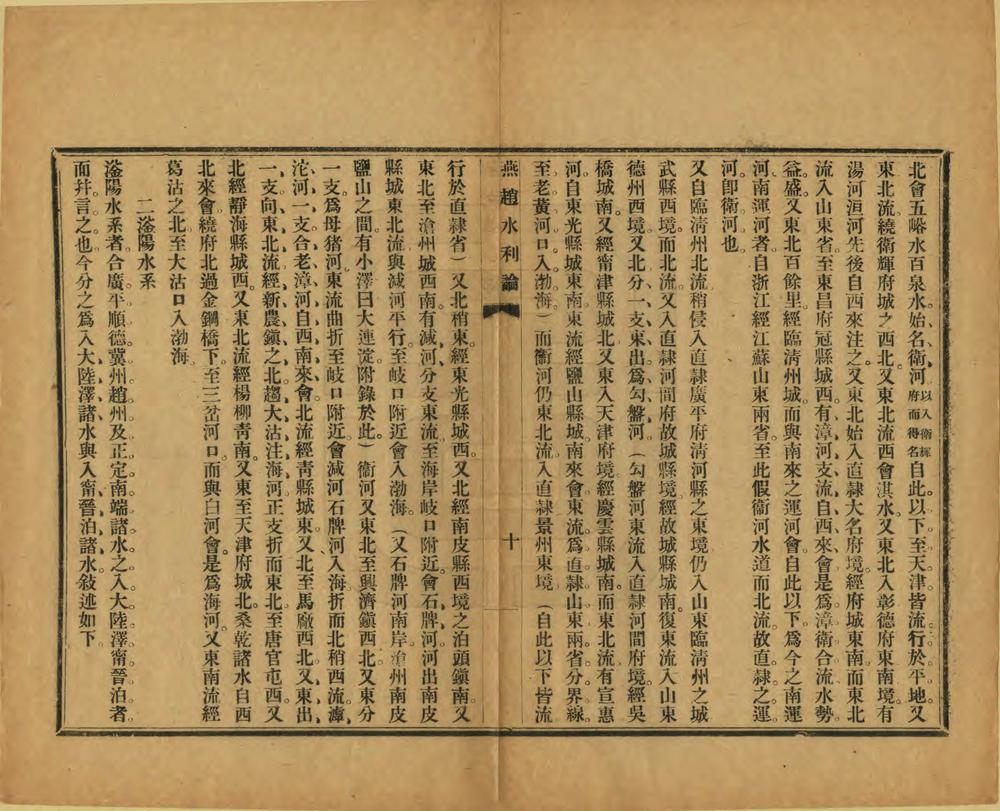 北會五峪水百泉水。始名衛河以入衛輝府而得名自此以下。至天津皆流行於平地。又
東北流繞衛輝府城之西北。又東北流西會淇水。又東北入彰德府東南境。有
湯河洹河先後自西來注之。又東北始入直隸大名府境。經府城東南。而東北
流入山東省。至東昌府冠縣城西。有漳河支流。自西來會。是爲漳衛合流。水勢
益盛。又東北百餘里。經臨淸州城。而與南來之運河會。自此以下。爲今之南運
河。南運河者。自浙江經江蘇山東兩省。至此假衞河水道而北流。故直隸之運
河。卽衛河也。
又自臨淸州北流。稍侵入直隸廣平府淸河縣之東境。仍入山東臨淸州之城
武縣西境。而北流。又入直隸河間府故城縣境。經故城縣城南。復東流入山東
德州西境。又北分一支東出。爲勾盤河（勾盤河東流入直隸河間府境。經吳
橋城城南。又經甯津縣城北。又東入天津府境。經慶雲縣城南。而東北流。有宣惠
河。自東光縣城東南。東流經鹽山縣城南來會。東流。爲直隸山東兩省分界線。
至老黃河口入渤海。）而衞河仍東北流。入直隸景州東境（自此以下皆流
燕趙水利論
十
行於直隸省）又北稍東。經東光縣城西。又北經南皮縣西境之泊頭鎭南。又
東北至滄州城西南。有減河。分支東流。至海岸岐口附近。會石牌河。河出南皮
縣城東北流。與減河平行。至岐口附近。會入渤海。（又石牌河南岸。滄州南皮
鹽山之間。有小澤曰大連淀。附錄於此。）衞河又東北至興濟鎭西北。又東分
一支。爲母猪河。東流曲折至岐口附近。會減河石牌河入海。折而北稍西流。滹
沱河一支。合老漳河。自西南來會。北流經靑縣城東。又北至馬廠西北。又東出
一支。向東北流。經新農鎭之北。趨大沽注海河。正支折而東北。至唐官屯西。又
北經靜海縣城西。又東北流。經楊柳靑南。又東至天津府城北。桑乾諸水自西
北來會。繞府北。過金鋼橋下。至三岔河口。而與白河會。是爲海河。又東南流經
葛沽之北。至大沽口入渤海。
二滏陽水系
滏陽水系者。合廣平順德冀州趙州及正定南端諸水之入大陸澤甯晉泊者。
而幷言之也。今分之爲入大陸澤諸水與入甯晉泊諸水。敍述如下。